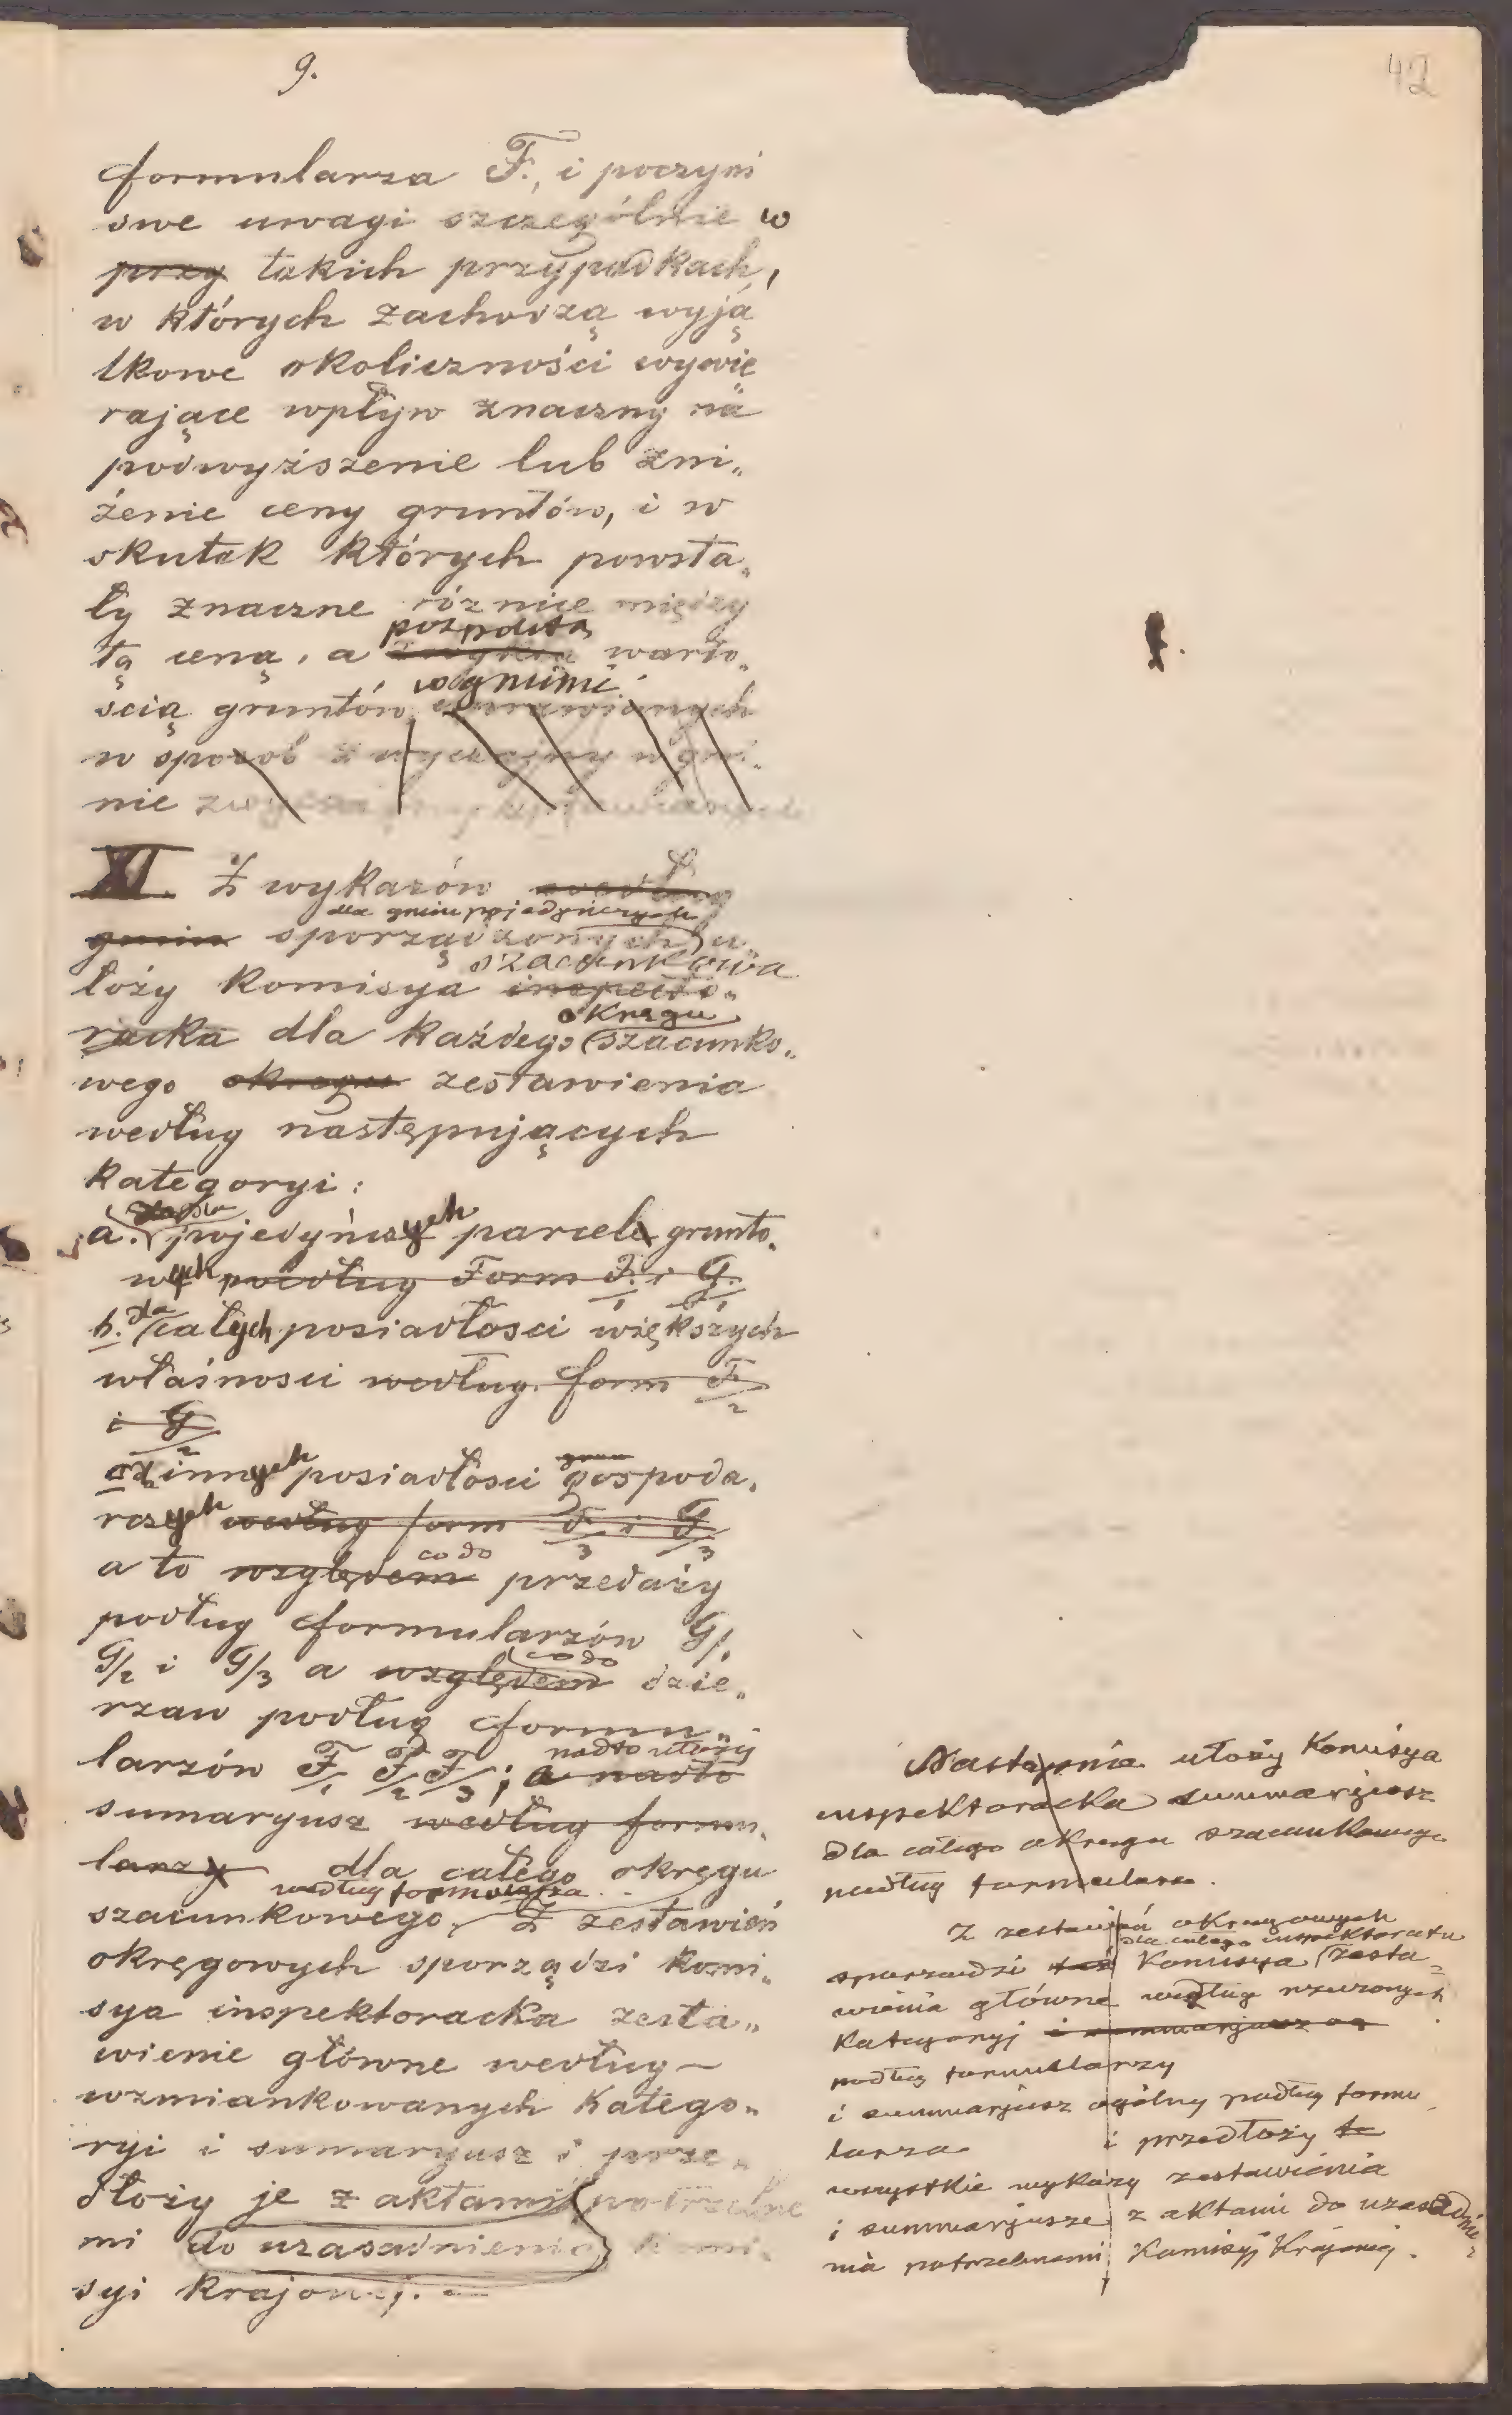 9.
42
formularza F., i poczyni
swe uwagi szczególnie w
przy takich przypadkach,
w których zachodzą wyją
tkowe okoliczności wywie
rające wpływ znaczny na
podwyższenie lub zni„
żenie ceny gruntów, i w
skutek których powsta„
ły znaczne różnice między
pospolitą
tą ceną, a zwykłą warto„
w gminie
ścią gruntów
w sposób zwyczajny w gmi„
nie
XI. Z wykazów według
dla gmin pojedyńczych
gmin sporządzonych u„
szacunkowa
łoży Komisya inspekto„
okręgu
racka dla każdego szacunko„
wego okręgu zestawienia
według następujących
kategoryi:
dla
a. pojedyńczych parcel grunto„
wych podług Form F/1 i G/1
dla
b. całych posiadłosci większych
własnosci według form F/2
i G/2
innych posiadłosci gospoda„
rczych według form F/3 i G/3
co do
a to względem przedaży
podług formularzów G/1
co do
G/2 i G/3 a względem dzie„
rzaw podług formu„
nadto ułoży
larzów F/1 F/2 F/3; a nadto
sumaryusz według formu„
larzy dla całego okręgu
według formularza
szacunkowego, Z zestawień
okręgowych sporządzi komi„
sya inspektoracka zesta„
wienie główne według
wzmiankowanych katego„
ryi i sumaryusz i prze„
dłoży je z aktami potrzebne
mi do uzasadnienia komi„
syi krajowej.
Następnie ułoży Komisya
inspektoracka summarjusz
dla całego okręgu szacunkowego
podług formularza.
Z zestawień okręgowych
dla całego inspektoratu
sporządzi też Komisya zesta„
wienia główne według rzeczonych
Kategoryj i summarjusz
podług formularzy
i summarjusz ogólny podług formu
larza i przedłoży te
wszystkie wykazy zestawienia
i summarjusze z aktami do uzasadnie„
nia potrzebnemi Komisyj Krajowej.